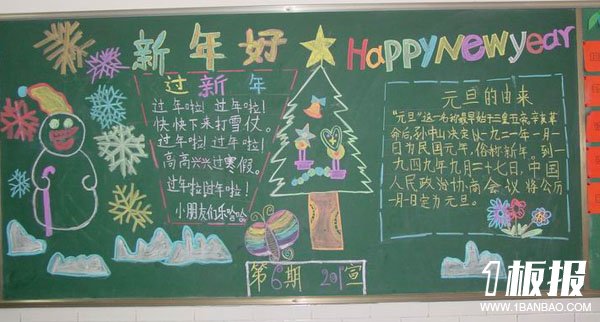 新年好
HAPPY New year
过新年
过年啦！过年啦！
快快下来打雪仗。
过年啦！过年啦！
高高兴兴过寒假。
过年啦过年啦！
小朋友们乐哈哈
元旦的由来
"元旦"这一名称最早始于三皇五帝，辛亥革
命后，孙中山决定以一九二一年一月一
日为民国元年，俗称新年。到一
九四九年九月二十七日，中国
人民政治协商会议将公历
一月一日定为元旦。
第6期 201宣
1板报
WWW.1BANBAO.COM